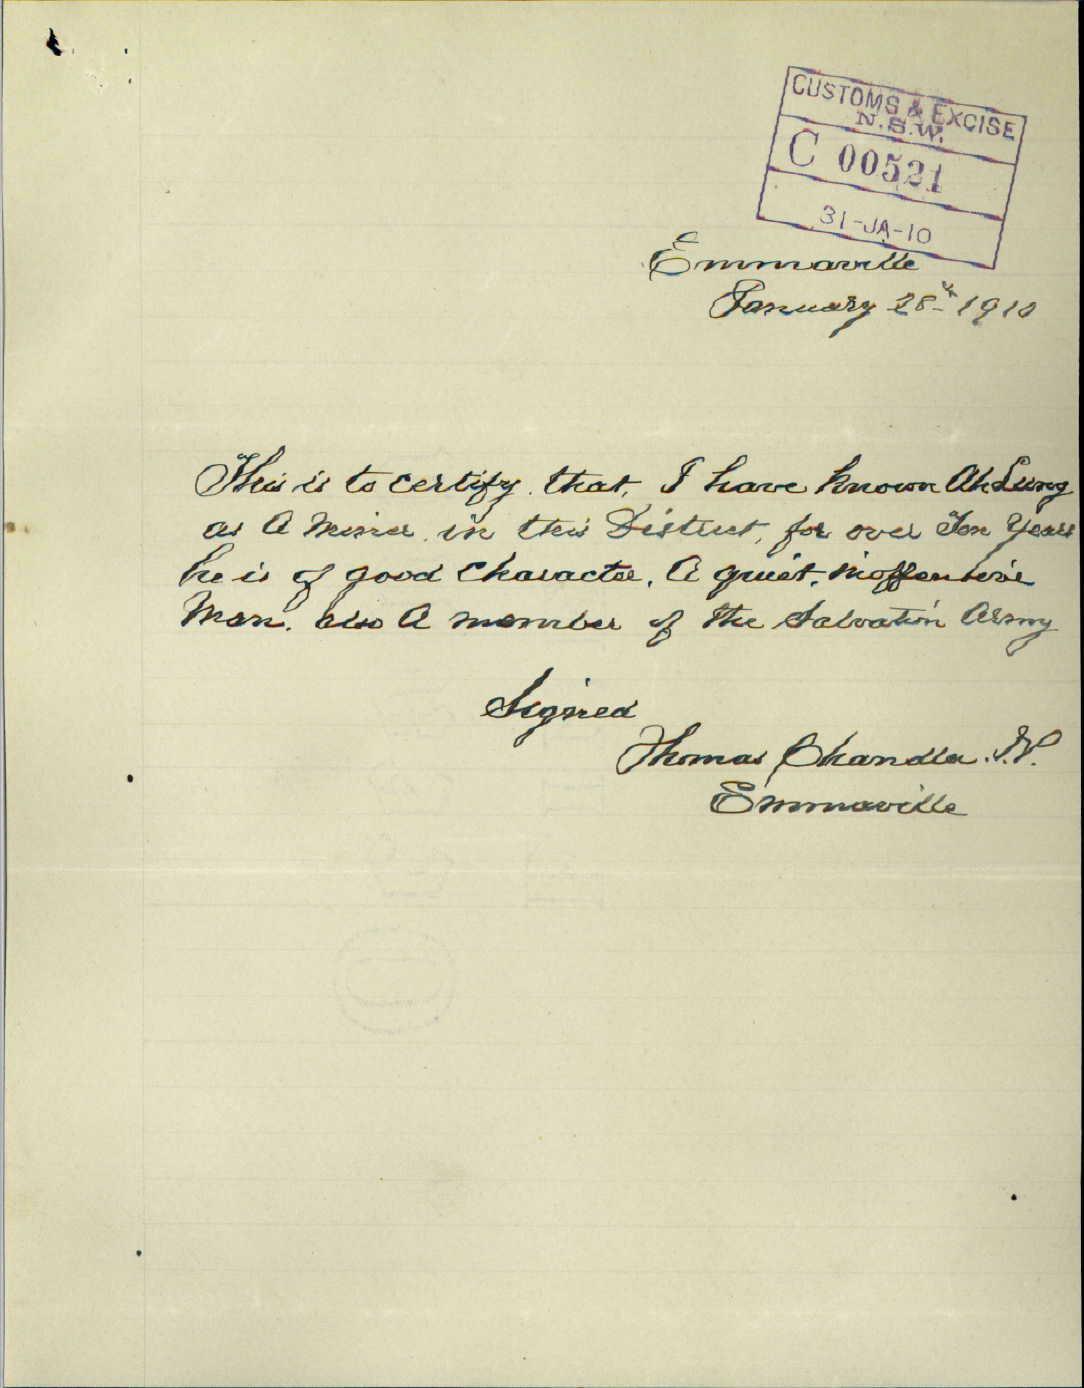 CUSTOMS & EXCISE
N.S.W.
C 00521
31-JA-10
Emmaville
January 28th 1910
This is to certify that, I have known Ah Lung
as A Miner in this District, for over Ten Years
he is of good Character, A quiet, inoffensive
Man. also A member of the Salvation Army
Signed
Thomas Chandler J.P.
Emmaville